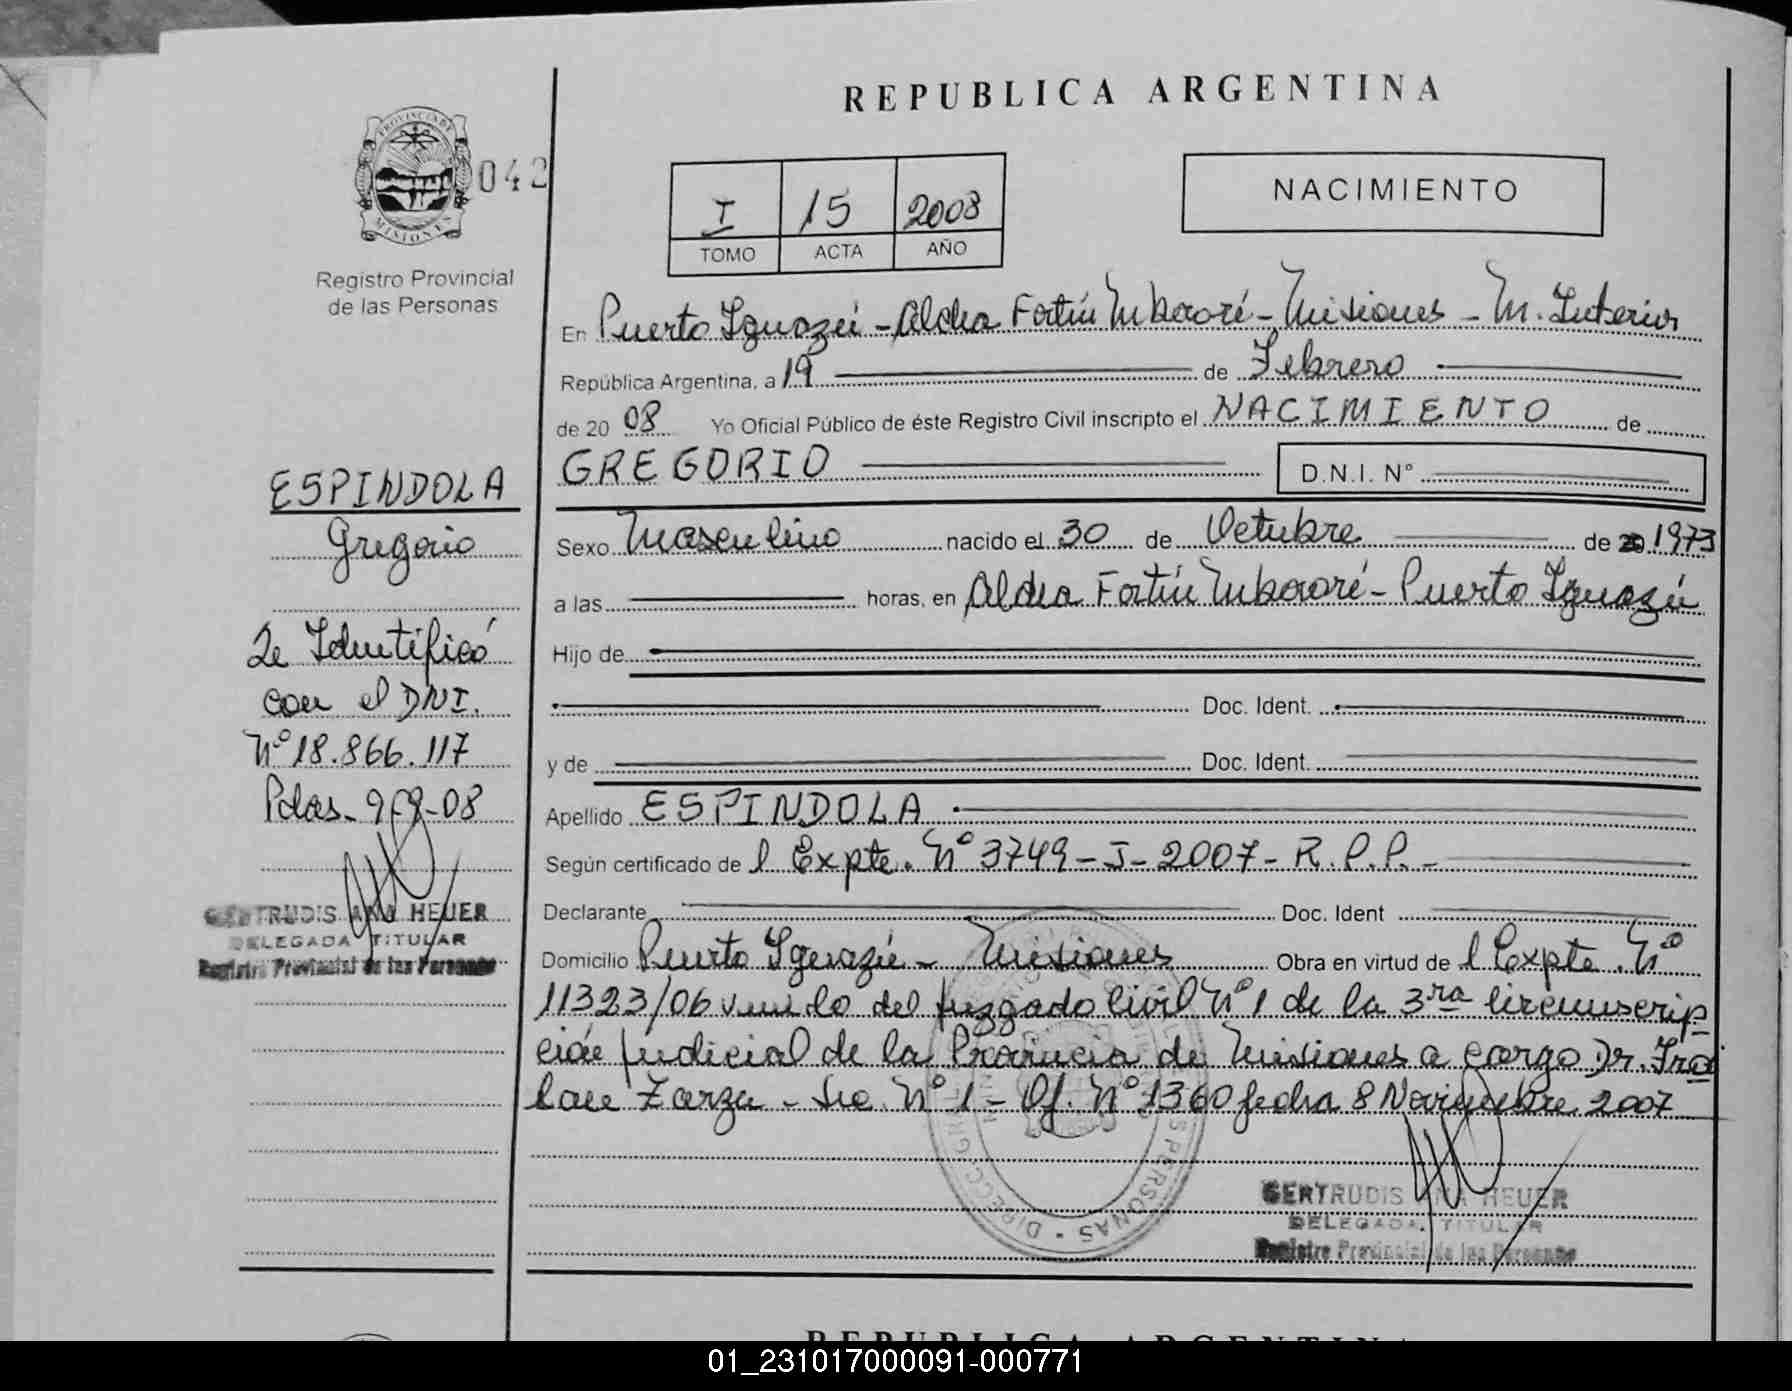 REPUBLICA ARGENTINA
PROVINCIA DE
MISIONES
042
Registro Provincial
de las Personas
I 15 2008
TOMO ACTA AÑO
NACIMIENTO
En Puerto Iguazú - Aldea Fortín Mbororé - Misiones - M. Interior
República Argentina, a 19 de Febrero
de 20 08 Yo Oficial Público de éste Registro Civil inscripto el NACIMIENTO de
GREGORIO D.N.I. N°
Sexo Masculino nacido el 30 de Octubre de 1973
a las horas, en Aldea Fortín Mbororé - Puerto Iguazú
Hijo de
Doc. Ident.
y de Doc. Ident.
Apellido ESPINDOLA
Según certificado de l Expte. N° 3749 - J - 2007 - R.P.P. -
Declarante Doc. Ident
Domicilio Puerto Iguazú - Misiones Obra en virtud de l Expte. N°
11323/06 venido del Juzgado Civil N° 1 de la 3ra Circunscrip
ción Judicial de la Provincia de Misiones a cargo Dr.
Zarza - Sec. N° 1 - Of. N° 1360 fecha 8 Noviembre 2007
GERTRUDIS ANA HEUER
DELEGADA TITULAR
Registro Provincial de las Personas
ESPINDOLA
Gregorio
Se Identificó
con el DNI.
N° 18.866.117
Pdas. 08
GERTRUDIS ANA HEUER
DELEGADA TITULAR
Registro Provincial de las Personas
REPUBLICA ARGENTINA
01_231017000091-000771